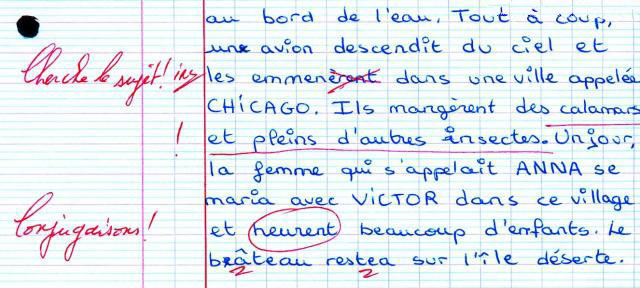 au bord de l'eau. Tout à coup,
une avion descendit du ciel et
Cherche le sujet! les emmenèrent dans une ville appelée
CHICAGO. Ils mangèrent des calamars
! et pleins d'autres insectes. Un jour,
la femme qui s'appelait ANNA se
maria avec VICTOR dans ce village
Conjugaisons! et heurent beaucoup d'enfants. Le
bâteau restea sur l'île déserte.
2 2